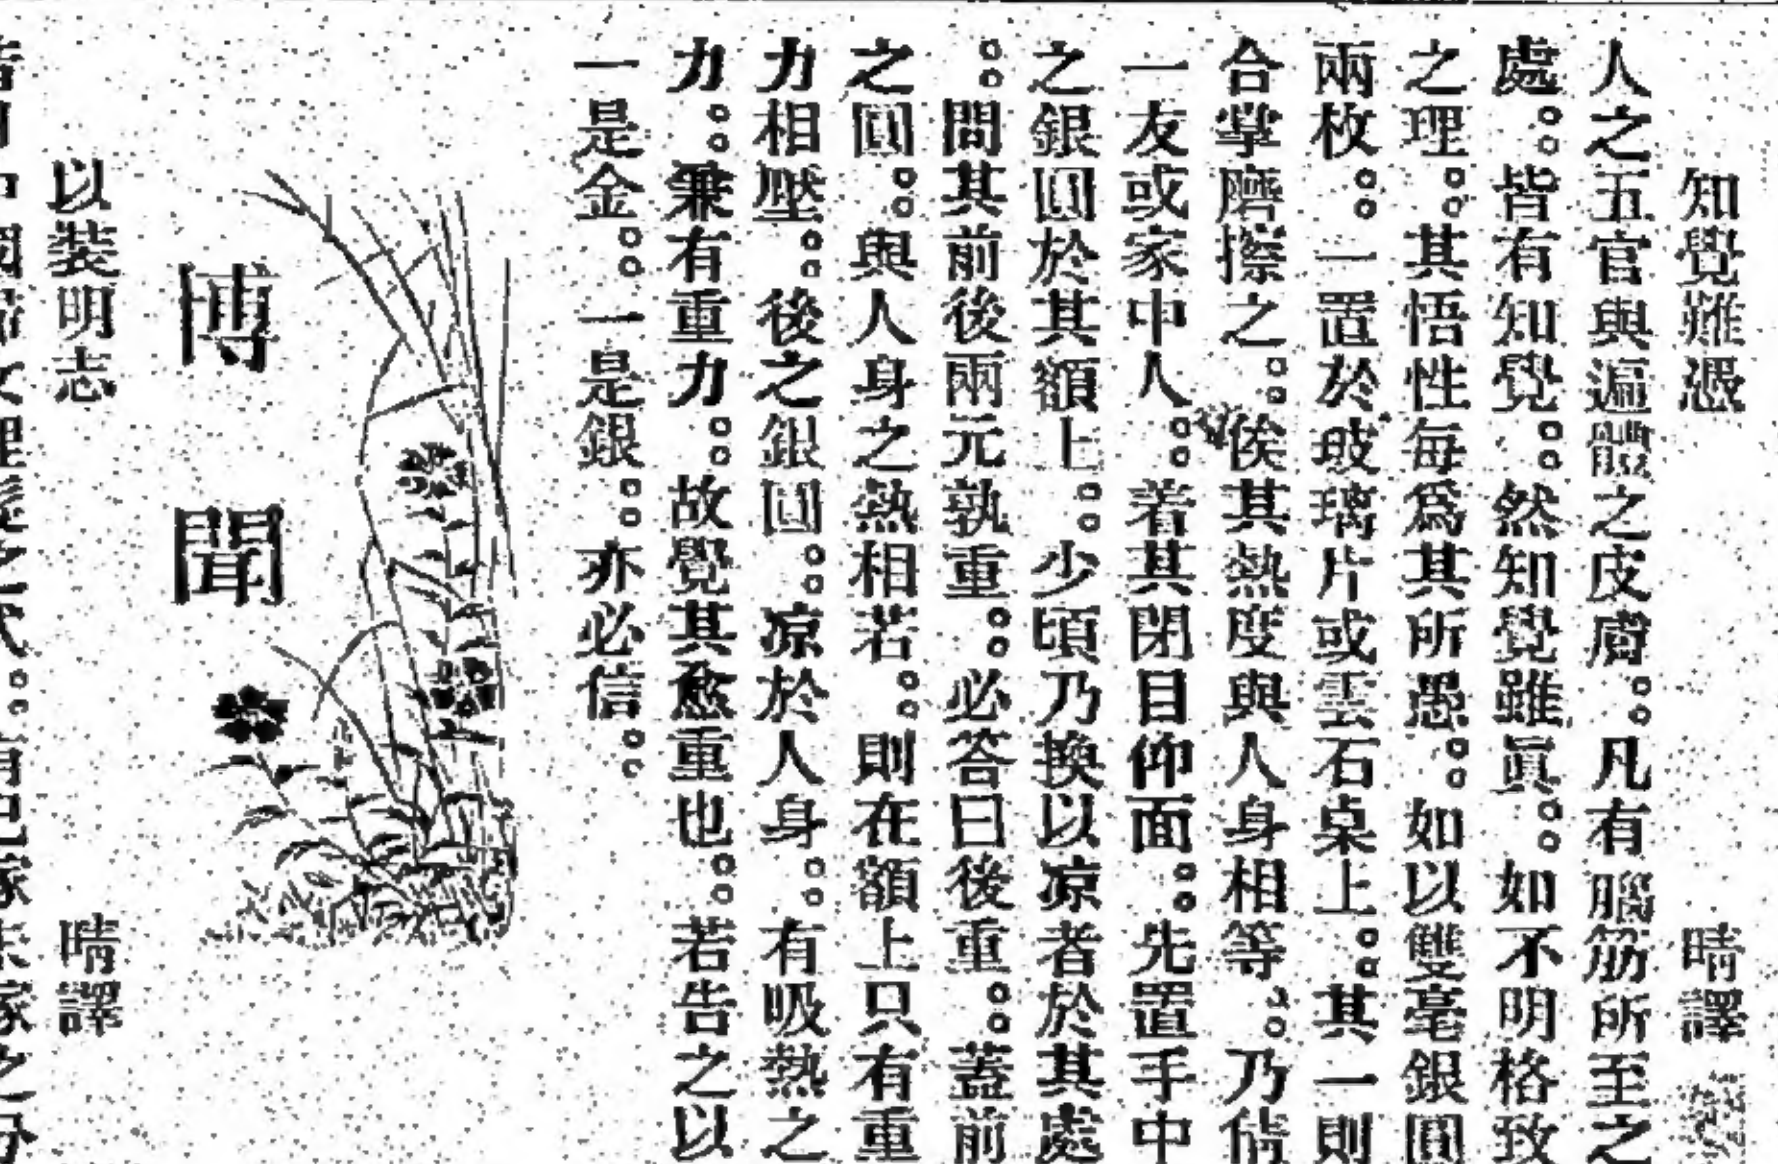 知覺難憑 晴譯
人之五官與遍體之皮膚。凡有腦筋所至之
處。皆有知覺。然知覺雖眞。如不明格致
之理。其悟性每爲其所愚。如以雙毫銀圓
兩枚。一置於玻璃片或雲石桌上。其一則
合掌磨擦之。俟其熱度與人身相等。乃倩
一友或家中人。着其閉目仰面。先置手中
之銀圓於其額上。少頃乃換以凉者於其處
。問其前後兩元孰重。必答曰後重。蓋前
之圓。與人身之熱相若。則在額上只有重
力相壓。後之銀圓。凉於人身。有吸熱之
力。兼有重力。故覺其愈重也。若吿之以
一是金。一是銀。亦必信。
博聞
以裝明志 晴譯